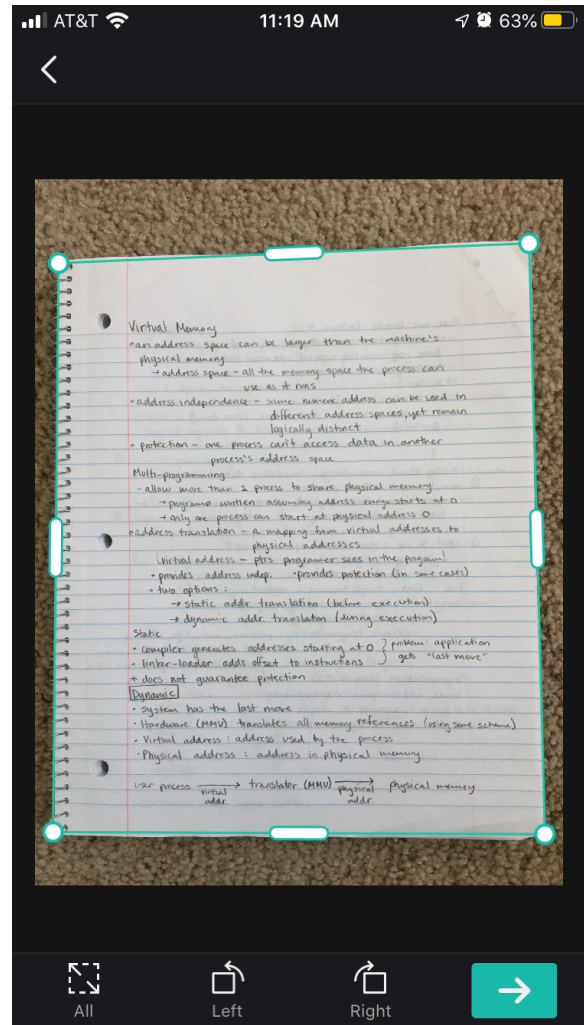 AT&T 11:19 AM 63%
Virtual Memory
• an address space can be larger than the machine's
physical memory
→ address space - all the memory space the process can
use as it runs
• address independence - same numeric address can be used in
different address spaces, yet remain
logically distinct
• protection - one process can't access data in another
process's address space
Multi-programming
- allow more than 1 process to share physical memory
→ programs written assuming address range starts at 0
→ only one process can start at physical address 0
• address translation - a mapping from virtual addresses to
physical addresses
(virtual address - ptrs programer sees in the program)
• provides address indep. • provides protection (in some cases)
• two options:
→ static addr. translation (before execution)
→ dynamic addr. translation (during execution)
Static
• compiler generates addresses starting at 0 } problem: application
• linker-loader adds offset to instructions } gets "last move"
+ does not guarantee protection
Dynamic
• system has the last move
• Hardware (MMU) translates all memory references (using same scheme)
• Virtual address: address used by the process
• Physical address: address in physical memory
user process → translator (MMU) → physical memory
virtual addr. physical addr.
All Left Right